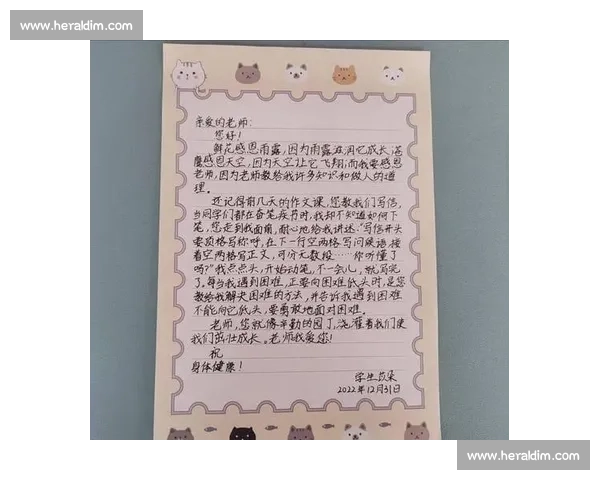 www.heraldim.com
亲爱的老师:
您好!
鲜花感恩雨露,因为雨露滋润它成长;苍
鹰感恩天空,因为天空让它飞翔;而我要感恩
老师,因为老师教给我许多知识和做人的道
理。
还记得前几天的作文课,您教我们写信,
当同学们都在奋笔疾书时,我却不知道如何下
笔,您走到我面前,耐心地给我讲述:“写信开头
要顶格写称呼,在下一行空两格写问候语,接
着空两格写正文,可分无数段……你听懂了
吗?”我点点头,开始动笔,不一会儿,就写完
了。每当我遇到困难,正要向困难低头时,是您
教给我解决困难的方法,并告诉我遇到困难
不能向它低头,要勇敢地面对困难。
老师,您就像辛勤的园丁,浇灌着我们使
我们茁壮成长。老师我爱您!
祝
身体健康!
学生
2022年12月31日
www.heraldim.com